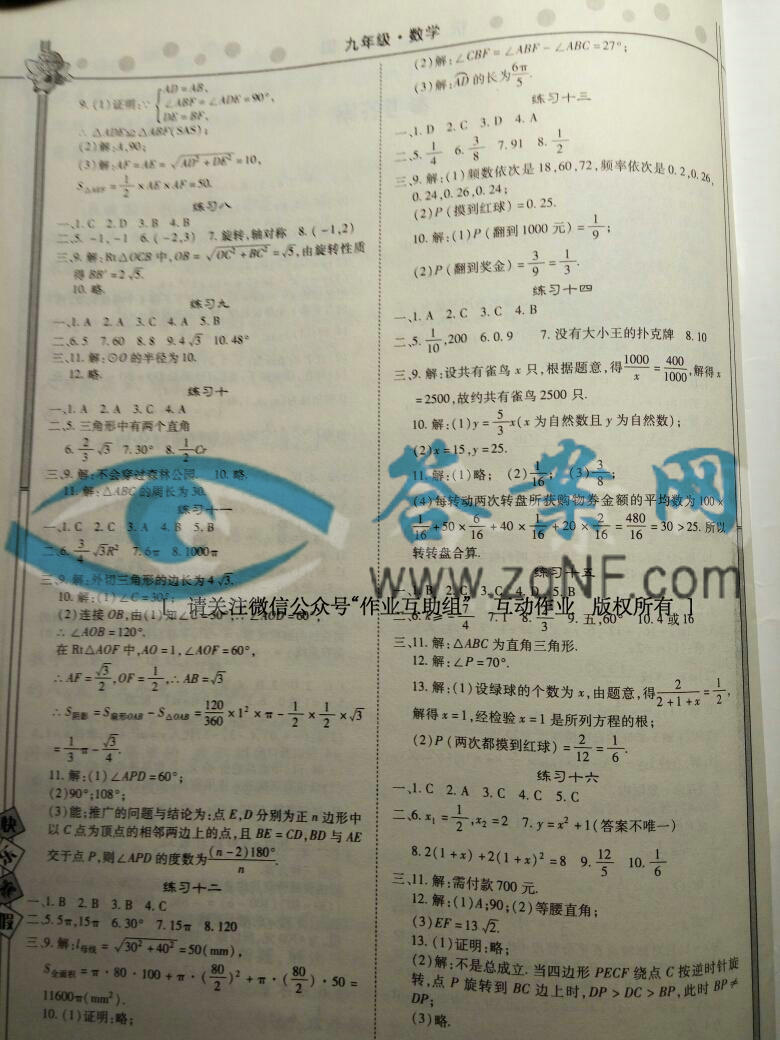 九年级·数学
9. (1)证明:∵ { AD=AB, ∠ABF=∠ADE=90°, DE=BF,
∴ △ADE≌△ABF(SAS);
(2)解:A,90;
(3)解:AF=AE=√(AD²+DE²)=10,
S△AEF=1/2×AE×AF=50.
练习八
一、1. C 2. D 3. B 4. B
二、5. -1, -1 6. (-2,3) 7. 旋转,轴对称 8. (-1,2)
三、9. 解:Rt△OCB中,OB=√(OC²+BC²)=√5,由旋转性质
得BB′=2√5.
10. 略.
练习九
一、1. A 2. A 3. C 4. A 5. B
二、6. 5 7. 60 8. 8 9. 4√3 10. 48°
三、11. 解:⊙O的半径为10.
12. 略.
练习十
一、1. A 2. A 3. C 4. A
二、5. 三角形中有两个直角
6. 2/3√3 7. 30° 8. 1/2Cr
三、9. 解:不会穿过森林公园. 10. 略.
11. 解:△ABC的周长为30.
练习十一
一、1. C 2. C 3. A 4. B 5. B
二、6. 3/4√3R² 7. 6π 8. 1000π
三、9. 解:外切三角形的边长为4√3.
10. 解:(1)∠C=30°;
(2)连接OB,由(1)知∠C=30°,∴∠AOD=60°;
∴ ∠AOB=120°.
在Rt△AOF中,AO=1,∠AOF=60°,
∴AF=√3/2,OF=1/2,∴AB=√3
∴ S阴影=S扇形OAB-S△OAB=120/360×1²×π-1/2×1/2×√3
=1/3π-√3/4.
11. 解:(1)∠APD=60°;
(2)90°;108°;
(3)能;推广的问题与结论为:点E,D分别为正n边形中
以C点为顶点的相邻两边上的点,且BE=CD,BD与AE
交于点P,则∠APD的度数为(n-2)180°/n.
练习十二
一、1. B 2. B 3. B 4. C
二、5. 5π,15π 6. 30° 7. 15π 8. 120
三、9. 解:l母线=√(30²+40²)=50(mm),
S全面积=π·80·100+π·(80/2)²+π·(80/2)·50=
11600π(mm²).
10. (1)证明:略;
(2)解:∠CBF=∠ABF-∠ABC=27°;
(3)解:AD的长为6π/5.
练习十三
一、1. D 2. C 3. D 4. A
二、5. 1/4 6. 3/8 7. 91 8. 1/2
三、9. 解:(1)频数依次是18,60,72,频率依次是0.2,0.26,
0.24,0.26,0.24;
(2)P(摸到红球)=0.25.
10. 解:(1)P(翻到1000元)=1/9;
(2)P(翻到奖金)=3/9=1/3.
练习十四
一、1. A 2. C 3. C 4. A
二、5. 1/10,200 6. 0.9 7. 没有大小王的扑克牌 8. 10
三、9. 解:设共有雀鸟x只,根据题意,得1000/x=400/1000,解得x
=2500,故约共有雀鸟2500只.
10. 解:(1)y=5/3x(x为自然数且y为自然数);
(2)x=15,y=25.
11. 解:(1)略; (2)1/16; (3)3/8;
(4)每转动两次转盘所获购物券金额的平均数为100×
1/16+50×6/16+40×1/16+20×2/16=480/16=30>25.所以
转转盘合算.
练习十五
一、1. B 2. C 3. C 4. C 5. C
二、6. x≥-7/4 7. 1 8. 1/3 9. 五,60° 10. 4或16
三、11. 解:△ABC为直角三角形.
12. 解:∠P=70°.
13. 解:(1)设绿球的个数为x,由题意,得2/(2+1+x)=1/2,
解得x=1,经检验x=1是所列方程的根;
(2)P(两次都摸到红球)=2/12=1/6.
练习十六
一、1. C 2. A 3. C 4. C 5. C
二、6. x₁=1/2,x₂=2 7. y=x²+1(答案不唯一)
8. 2(1+x)+2(1+x)²=8 9. 12/5 10. 1/6
三、11. 解:需付款700元.
12. 解:(1)A;90;(2)等腰直角;
(3)EF=13√2.
13. (1)证明:略;
(2)解:不是总成立. 当四边形PECF绕点C按逆时针旋
转,点P旋转到BC边上时,DP>DC>BP,此时BP≠
DP;
(3)略.
答案网
www.zqNF.com
[ 请关注微信公众号“作业互助组” 互动作业 版权所有 ]
快
乐
寒
假